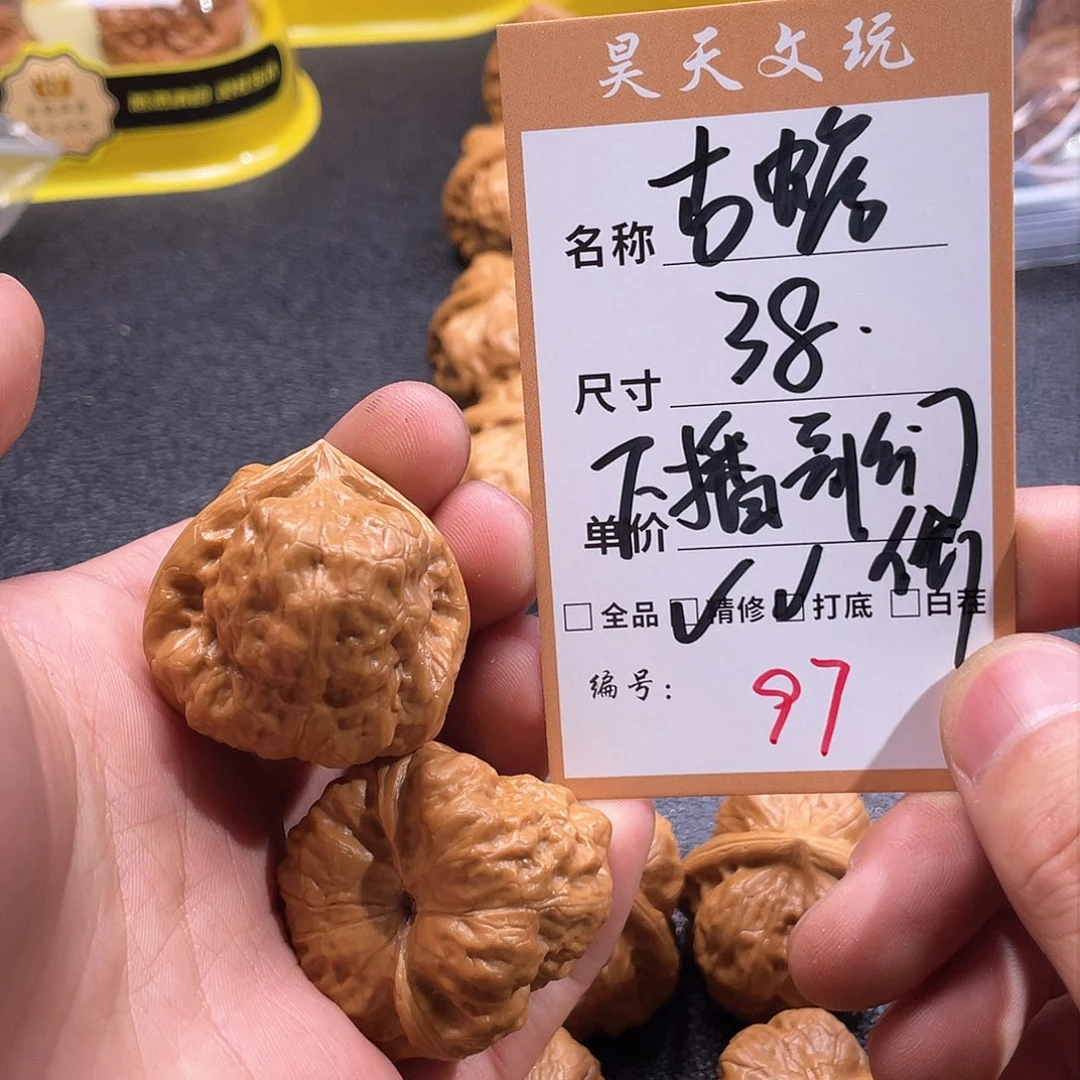 昊天文玩
名称 古蟾
尺寸 38.
单价 下播
□ 全品 ☑ 精修 ☑ 打底 □ 白茬
编号: 97